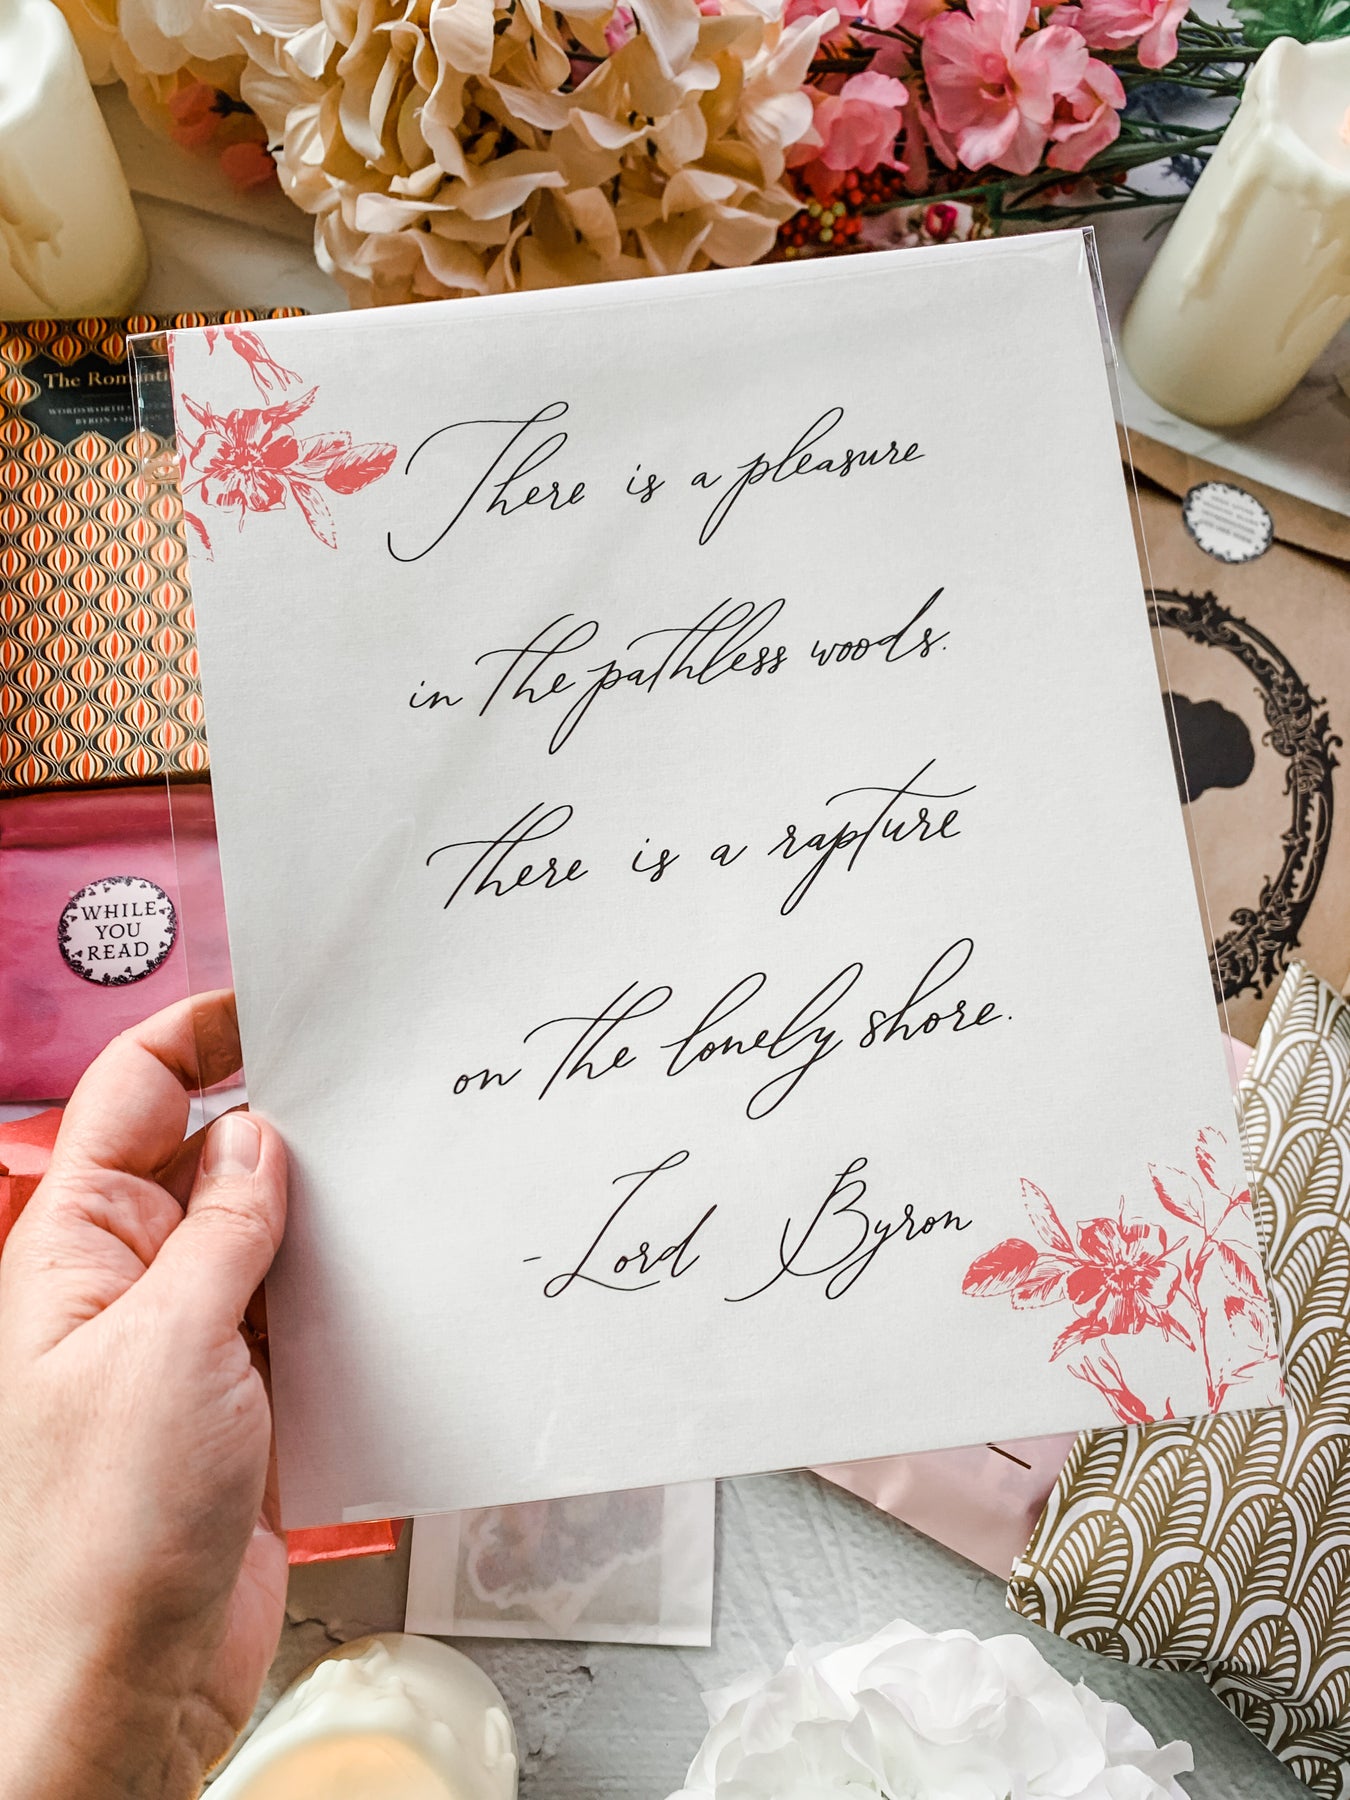 There is a pleasure
in the pathless woods.
there is a rapture
on the lonely shore.
- Lord Byron
The Romanti
WORDSWORTH
BYRON
WHILE
YOU
READ